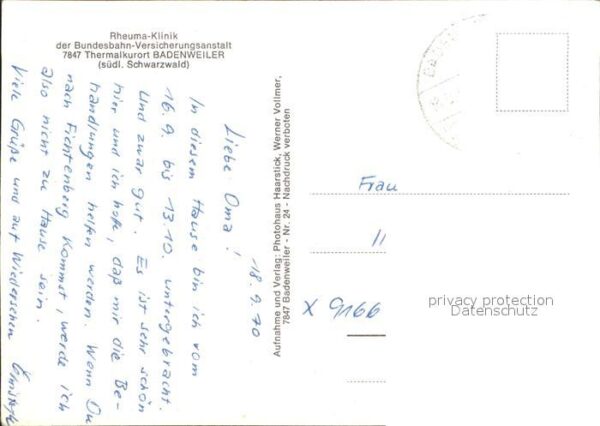 Rheuma-Klinik
der Bundesbahn-Versicherungsanstalt
7847 Thermalkurort BADENWEILER
(südl. Schwarzwald)
18.9.70
Liebe Oma!
In diesem Hause bin ich vom
16.9. bis 13.10. untergebracht.
Und zwar gut. Es ist sehr schön
hier und ich hoffe, daß mir die Be-
handlungen helfen werden. Wenn Du
nach Fichtenberg kommst, werde ich
also nicht zu Hause sein.
Viele Grüße und auf Wiedersehen
Aufnahme und Verlag: Photohaus Haarstick, Werner Vollmer,
7847 Badenweiler - Nr. 24 - Nachdruck verboten
Frau
X 9166
privacy protection
Datenschutz